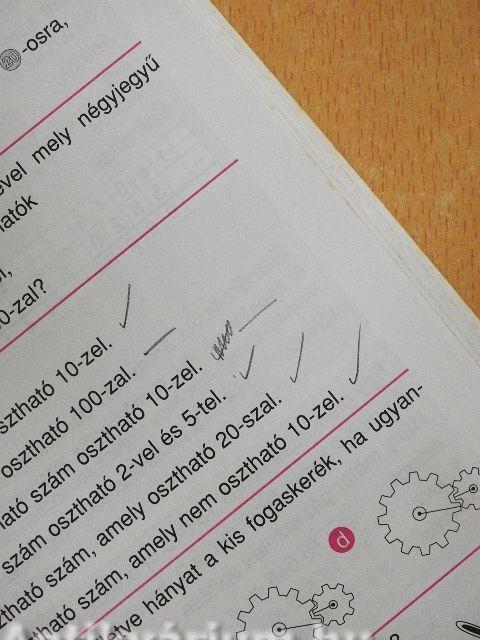 20 -osra,
mely négyjegyű
0-zal?
osztható 10-zel.
osztható 100-zal.
szám osztható 10-zel.
szám osztható 2-vel és 5-tel.
szám, amely osztható 20-szal.
szám, amely nem osztható 10-zel.
hányat a kis fogaskerék, ha ugyan-
d